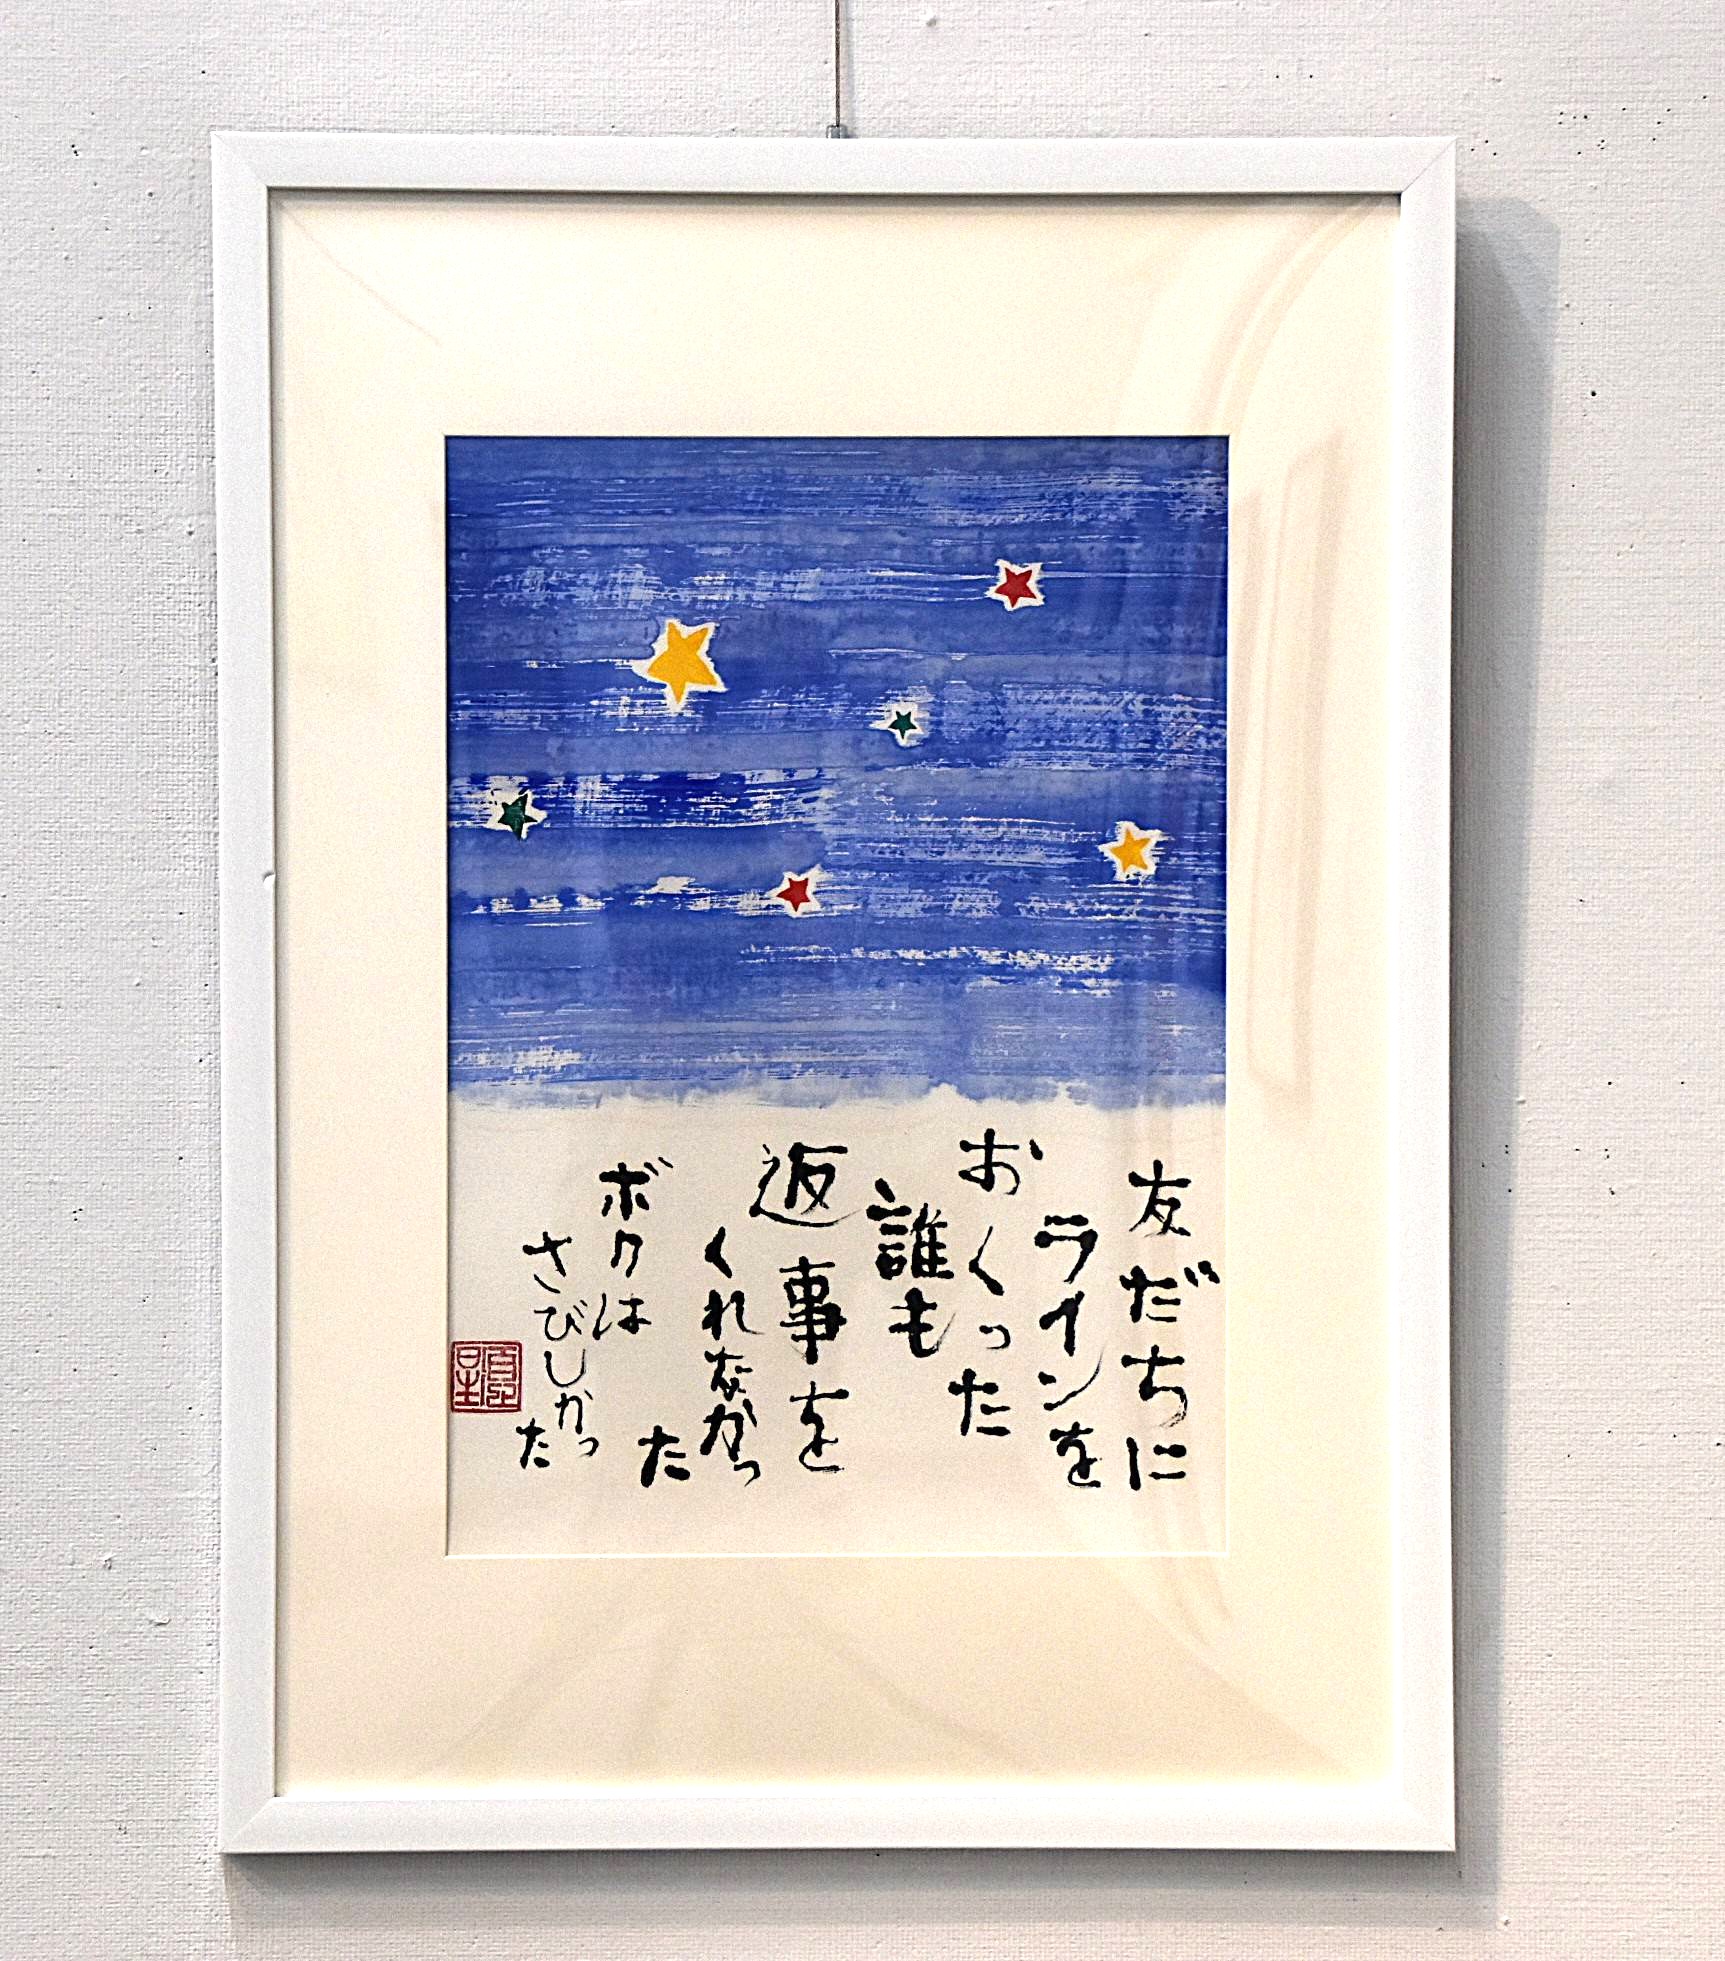 友だちに
ラインを
おくった
誰も
返事を
くれなかっ
た
ボクは
さびしかっ
た